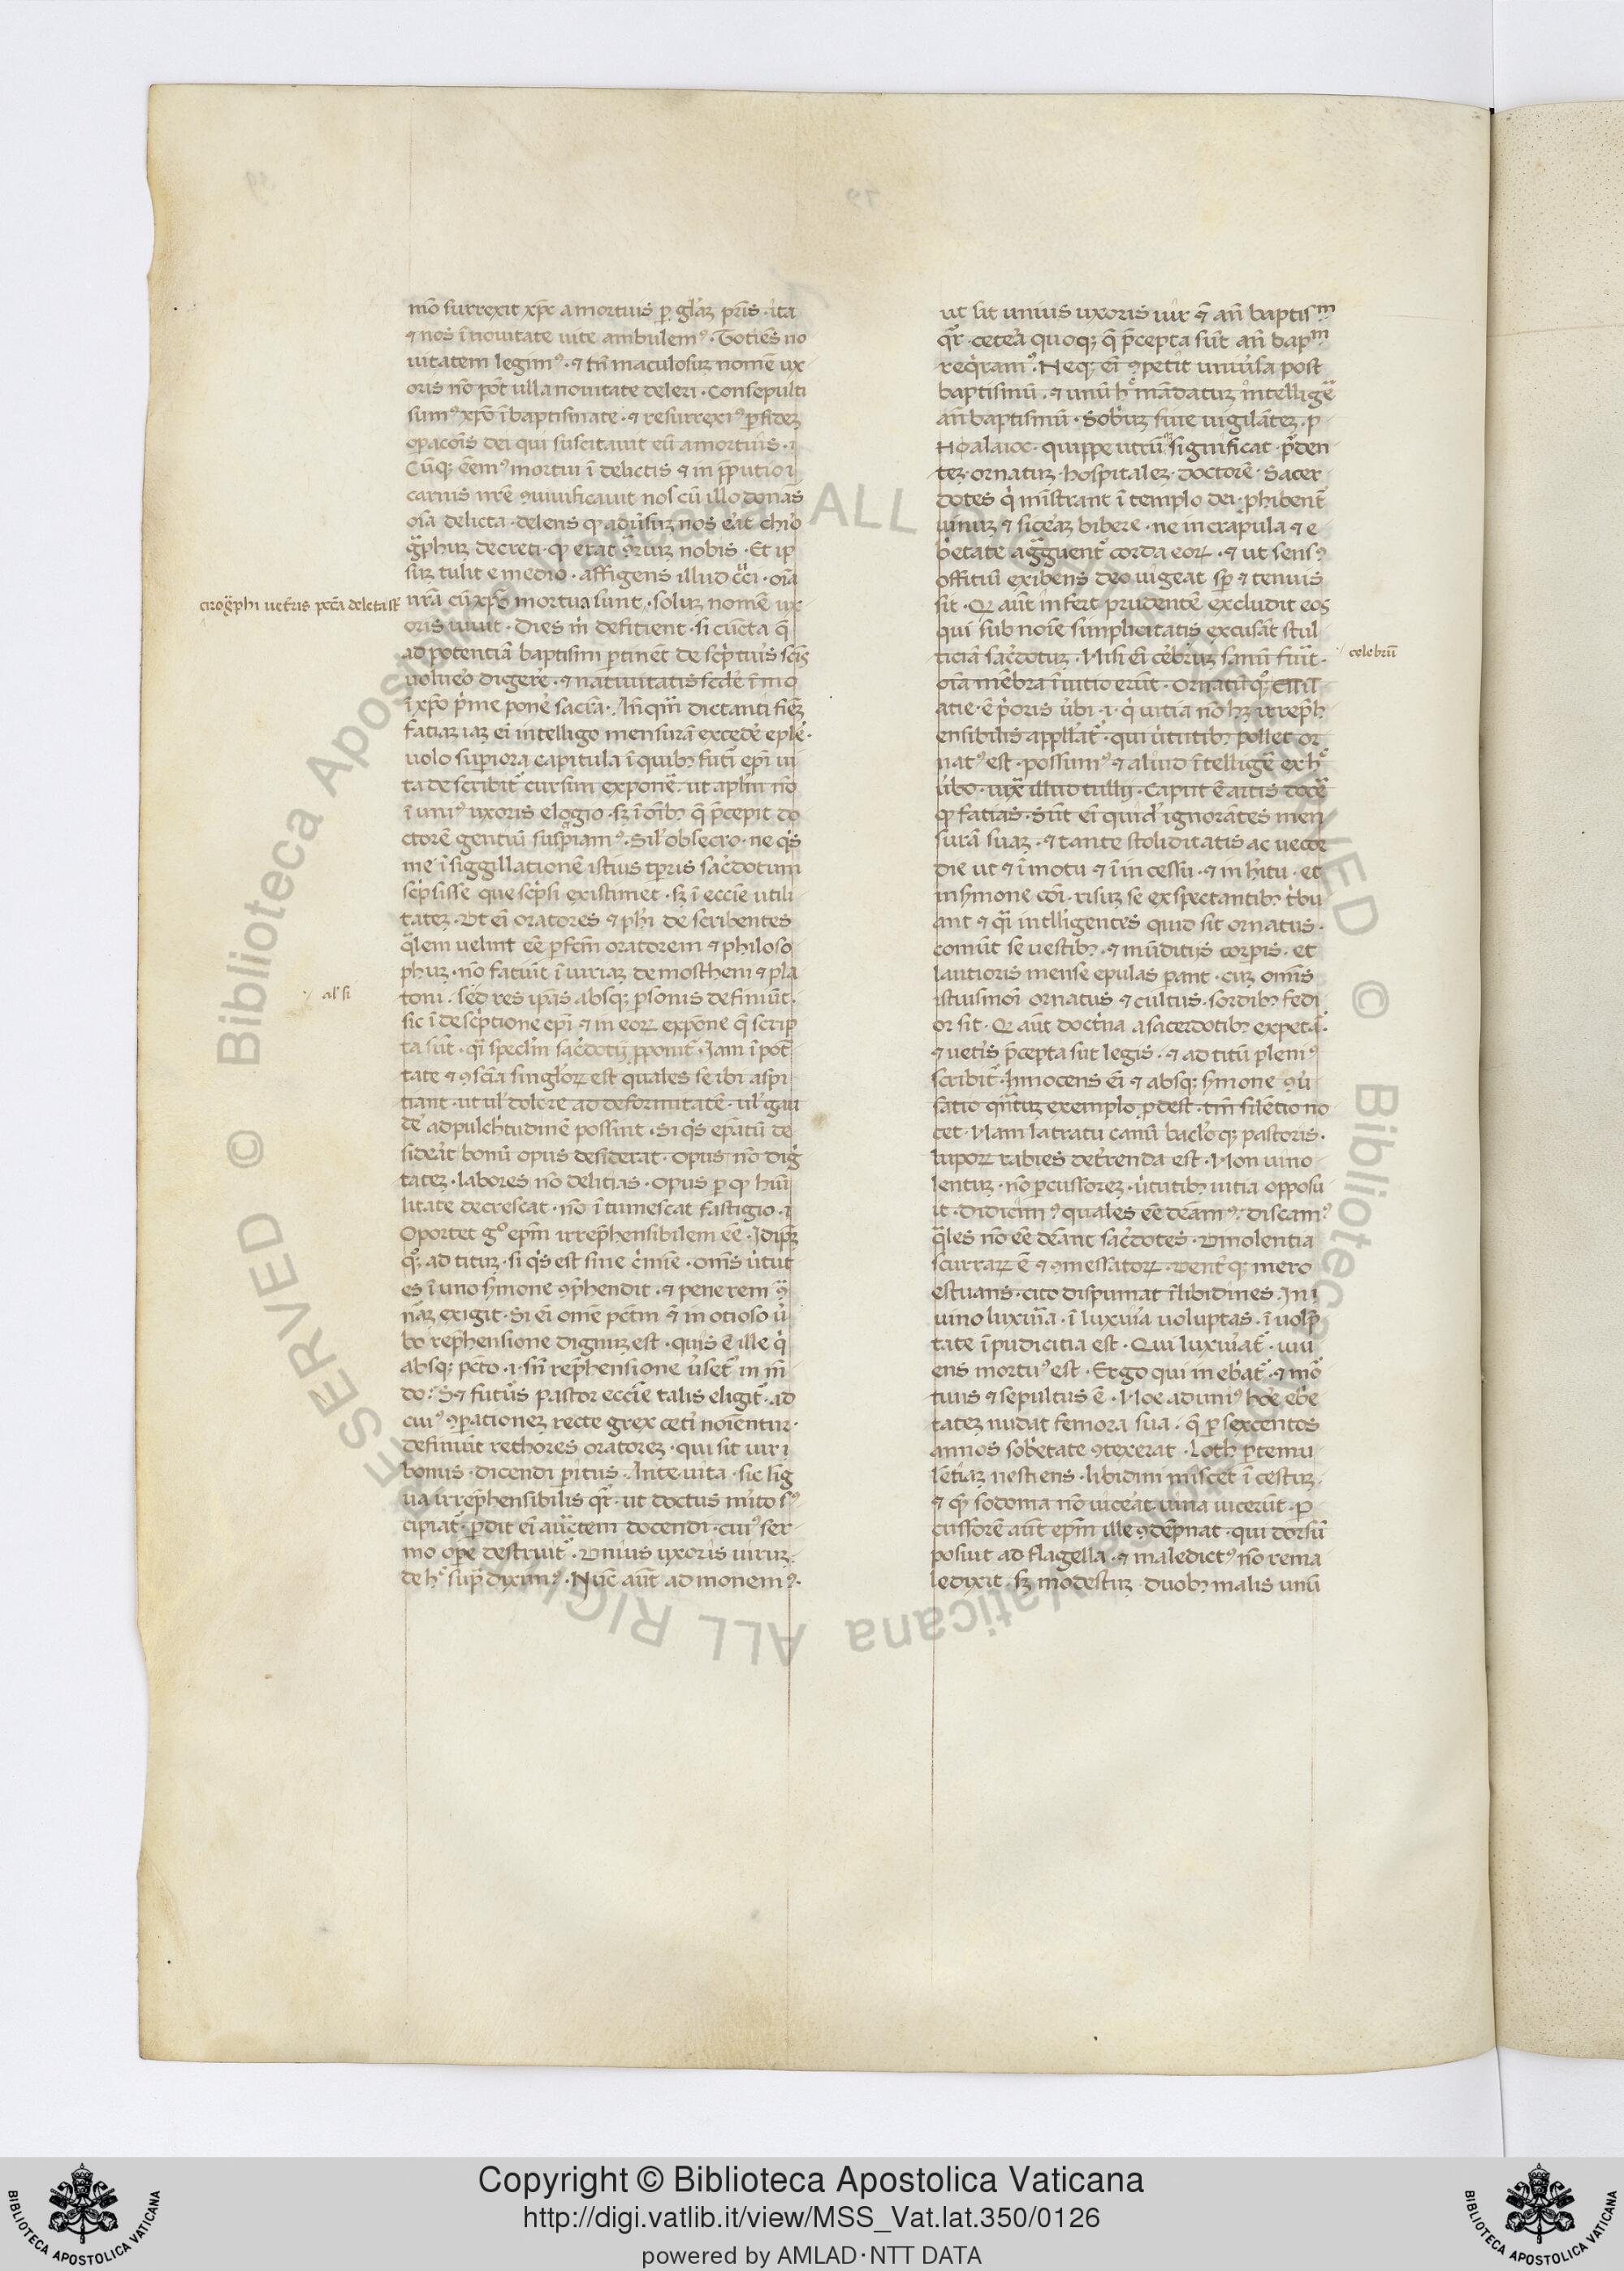 mõ surrexit xp̃c a mortuis ꝑ gl̃aꝫ pr̃is · ita
⁊ nos ĩ nouitate uite ambulemꝰ · Totiẽs no
uitatem legimꝰ · ⁊ tñ maculosuꝫ nomẽ ux
oris nõ põt ulla nouitate deleri · Consepulti
sumꝰ xp̃o ĩ baptismate · ⁊ resurreximꝰ ꝑ fideꝫ
oꝑacõis dei qui suscitauit eũ a mortuis ·
Cũqꝫ eẽmꝰ mortui ĩ delictis ⁊ in p̃putio
carnis nr̃e ꝯuiuificauit nos cũ illo donãs
oĩa delicta · delens qꝫ adũsuꝫ nos erãt chiro
g̃phuꝫ decreti · qꝫ erat ꝯ̃riuꝫ nobis · Et ip̃
suꝫ tulit e medio · affigens illud c̃ci · oĩa
cirog̃phi uet̃is pc̃ta deleta st̃
nr̃a cũ xp̃o mortua sunt · soluꝫ nomẽ ux
oris uiuit · Dies m̃ defitient · si cũcta q̃
ad potentiã baptismi ꝑtinẽt de sc̃pturis scĩs
uoluero digere · ⁊ natiuitatis scd̃e ĩmo
ĩ xp̃o p̃me ponẽ sacr̃a · Añq̃m dictanti finẽꝫ
fatiaꝫ iaꝫ eñ intelligo mensurã excedẽ epl̃e ·
uolo suꝑiora capitula ĩ quibꝫ futĩ ep̃i ui
ta describit᷑ cursim expone᷑ · ut apl̃m nõ
ĩ uniꝰ uxoris elogio · sꝫ ĩ oĩbꝫ q̃ p̃cepit do
ctorẽ gentiũ suspiamꝰ · Sil̃ obsecro · ne q̃s
me ĩ siggillationẽ istius tꝑis sac̃dotum
sc̃psisse que sc̃psi existimet · sꝫ ĩ ecc̃ie utili
tateꝫ · Vt eñ oratores ⁊ ph̃i describentes
q̃lem uelint eẽ ꝑfc̃m oratorem ⁊ philoso
phuꝫ · nõ fatiũt ĩiuriaꝫ demostheni ⁊ pla
al̃ si
toni · sed res ip̃as absqꝫ ꝑsonis definiũt ·
sic ĩ desc̃ptione ep̃i ⁊ in eoꝝ expõne q̃ scrip
ta sũt · q̃i specl̃m sac̃dotij ꝓponit᷑ · Iam ĩ pot̃
tate ⁊ ꝯscĩa singl̃oꝝ est quales se ibi aspi
tiant · ut ul̃ dolere ad deformitatẽ · ul̃ gau
dẽ ad pulch̃tudinẽ possint · Si q̃s ep̃atũ de
siderãt bonũ opus desiderat · Opus nõ dig̃
tateꝫ · labores nõ delitias · Opus ꝑ qꝫ hũi
litate decrescat · nõ ĩtumescat fastigio ·
Oportet gͦ ep̃m irrep̃hensibilem eẽ · Idip̃ꝫ
qͦꝫ ad tituꝫ · si q̃s est sine c̃mĩe · oñs ũtut
es ĩ uno s̃mone ꝯp̃hendit · ⁊ pene rem ꝯ̃
nãꝫ exigit · Si eñ omẽ pctm̃ ⁊ in otioso ũ
bo rep̃hensione dignuꝫ est · quis ẽ ille q̃
absqꝫ pc̃to · i · sñ rep̃hensione ũset᷑ in mũ
do · S⁊ futuꝰ pastor ecc̃ie talis eligit᷑ · ad
cuiꝰ ꝯꝑationeꝫ recte grex cet̃i noĩentur ·
definiũt rethores oratoreꝫ · qui sit uir
bonus · dicendi ꝑitus · Ante uita · sic lĩg
ua irrep̃hensibilis qr̃ · ut doctus m̃ito sꝰ
cipiat᷑ · ꝑdit eñ auc̃tem docendi · cuiꝰ ser
mo oꝑe destruit᷑ · Vnius uxoris uiruꝫ ·
de hͦ sup̃ diximꝰ · Nũc aũt admonemꝰ ·
ut sit unius uxoris uir ⁊ añ baptisᵐ
qr̃ · cetera quoqꝫ q̃ p̃cepta sũt añ bapᵐ
req̃ramꝰ · Neqꝫ eñ ꝯpetit uniũsa post
baptismũ · ⁊ unũ hͦ mãdatuꝫ intellige᷑
añ baptismũ · Sobriuꝫ siue uigilãteꝫ · ꝑ
ΝΗΦΑΛΑΙΟC · quippe utrũ significat · p̃den
teꝫ · ornatuꝫ · hospitaleꝫ · doctorẽ · Sacer
dotes q̃ mĩstrant ĩ templo dei · ꝓhibent᷑
uinuꝫ ⁊ siceraꝫ bibere · ne in crapula ⁊ e
b̃etate agg̃uent᷑ corda eoꝝ · ⁊ ut sensꝰ
offitiũ exibens deo uigeat sꝑ ⁊ tenuis
sit · Qꝫ aũt infert prudentẽ excludit eos
qui sub noĩe simplicitatis excusãt stul
titiã sac̃dotuꝫ · Nisi eñ cẽbruꝫ sanũ fũit ·
celebrũ
oĩa mẽbra ĩ uitio erũt · Ornatũ qͦꝫ
atie · ẽ p̃oris ũbi · i · q̃ uitia nõ hꝫ irrep̃h
ensibilis appllãt᷑ · qui ũtutibꝫ pollet or
natꝰ est · possumꝰ ⁊ aliud ĩtelligẽ ex hͦ
ũbo · iux̃ illud tullij · Caput ẽ artis doce᷑
qꝫ fatias · Sũt eñ quid̃ ignorãtes men
surã suaꝫ · ⁊ tante stoliditatis ac uecor
die ut ⁊ ĩ motu ⁊ ĩ incessu · ⁊ in h̃itu · et
in s̃mone cõi · risuꝫ se exspectantibꝫ t̃bu
ant ⁊ q̃i intelligentes quid sit ornatus ·
comũt se uestibꝫ · ⁊ mũditijs corpis · et
lautioris mense epulas ꝑant · cuꝫ omĩs
istiusmõi ornatus ⁊ cultus · sordibꝫ fedi
or sit · Qꝫ aũt doct̃na a sacerdotibꝫ expetã᷑
⁊ uet̃is p̃cepta sũt legis · ⁊ ad titũ pleniꝰ
scribit᷑ · Innocens eñ ⁊ absqꝫ s̃mone ꝯũ
satio qñtuꝫ exemplo ꝓdest · tm̃ silẽtio no
cet · Nam latratu canũ bacl̃oqꝫ pastoris ·
lupoꝝ rabies det̃renda est · Non uino
lentuꝫ · nõ ꝑcussoreꝫ · ũtutibꝫ uitia opposu
it · Didicimꝰ quales eẽ deãmꝰ · discamꝰ
q̃les nõ eẽ deãnt sac̃dotes · Vinolentia
scurraꝝ ẽ ⁊ ꝯmessatoꝝ · Vent̃qꝫ mero
estuans · cito dispumat ĩ libidines · In
uino luxuria · ĩ luxuria uoluptas · ĩ uolp̃
tate ĩpudicitia est · Qui luxuriat᷑ · uiu
ens mortuꝰ est · Ergo qui inebriat᷑ · ⁊ mor
tuus ⁊ sepultus ẽ · Noe ad uniꝰ hore ebrie
tateꝫ nudat femora sua · q̃ ꝑ sexcentos
annos sobrietate ꝯtexerat · Loth ꝑ temu
lẽtiaꝫ nesciens · libidini miscet ĩcestuꝫ ·
⁊ qꝫ sodoma nõ uicerat uina uicerũt · ꝑ
cussorẽ aũt ep̃m ille ꝯdẽpnat · qui dorsũ
posuit ad flagella · ⁊ maledictꝰ nõ rema
ledixit · sꝫ modestuꝫ · duobꝫ malis unũ
Copyright © Biblioteca Apostolica Vaticana
http://digi.vatlib.it/view/MSS_Vat.lat.350/0126
powered by AMLAD·NTT DATA